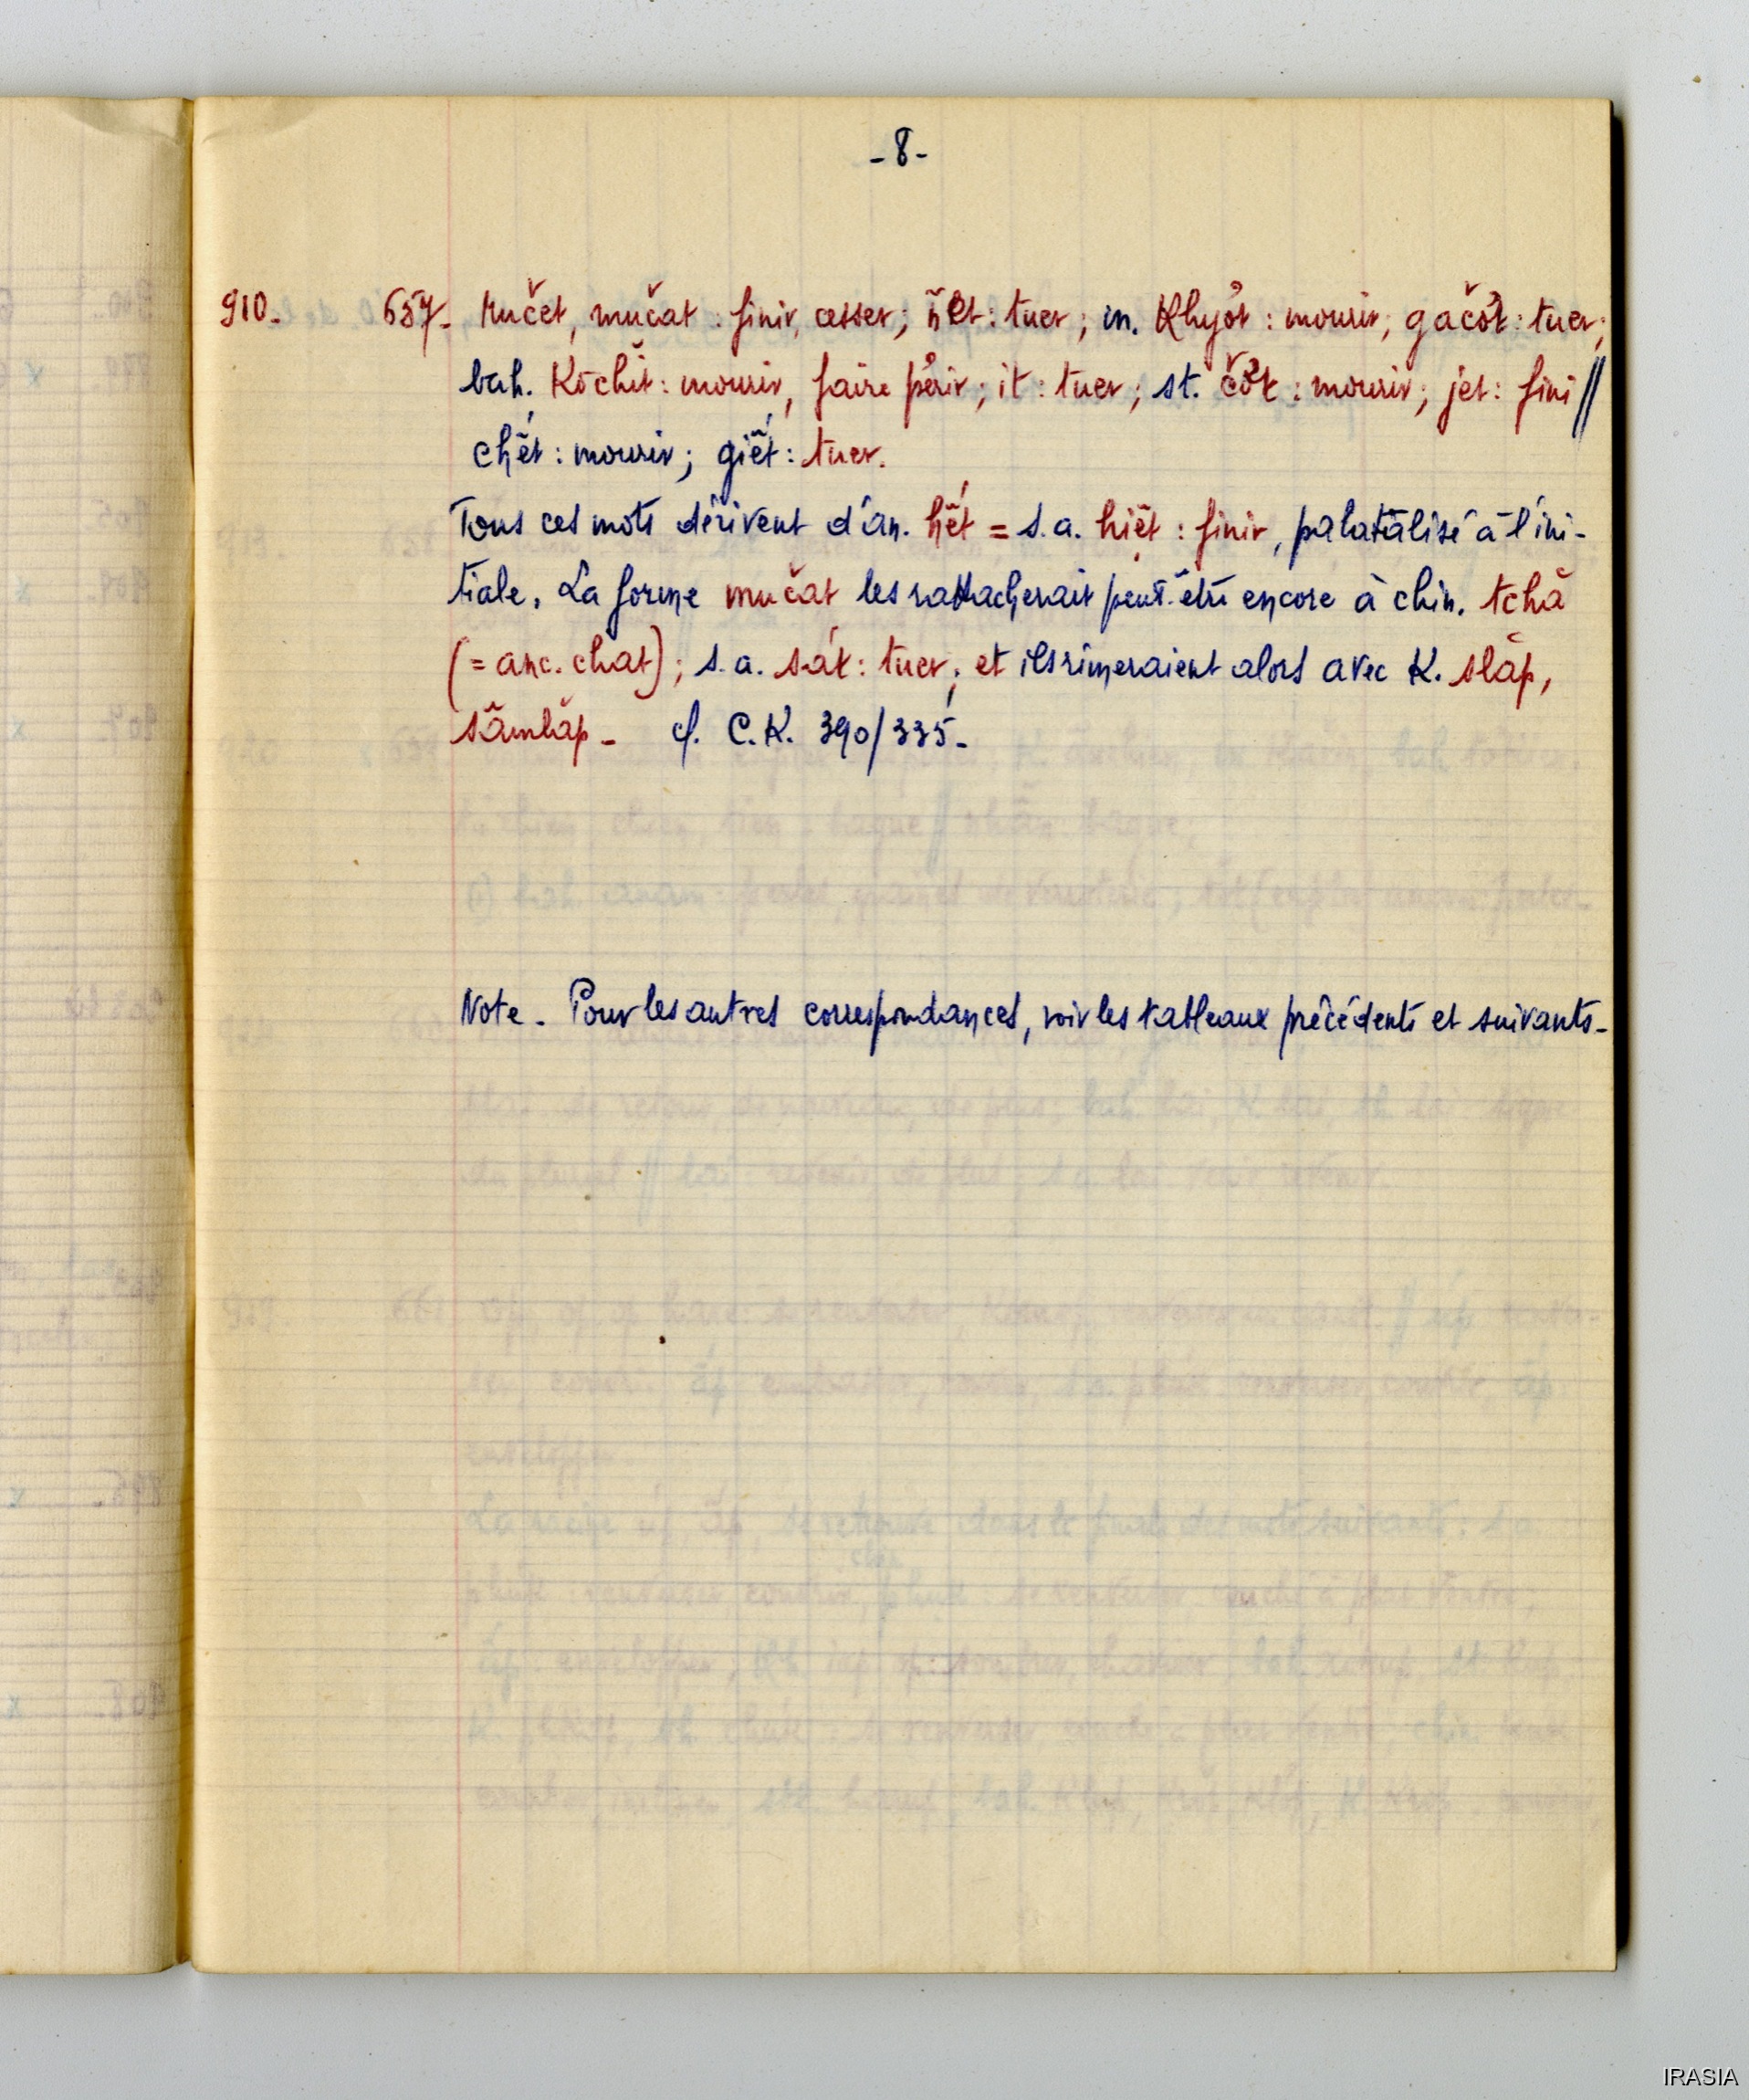 -8-
910. 657. Mučet, mučat : finir, cesser; ñět : tuer; in. Khyơt : mourir; gačơt : tuer;
bah. Kochit : mourir, faire périr; it : tuer; st. čơt : mourir; jet : fini //
chết : mourir; giết : tuer.
Tous ces mots dérivent d'an. hết = s.a. hiệt : finir, palatalisé à l'ini-
tiale. La forme mučat les rattacherait peut-être encore à chin. tchă
(= anc. chat); s.a. sát : tuer; et ils rimeraient alors avec K. slăp,
sămlăp - cf. C.K. 390/335-
Note - Pour les autres correspondances, voir les tableaux précédents et suivants-
IRASIA